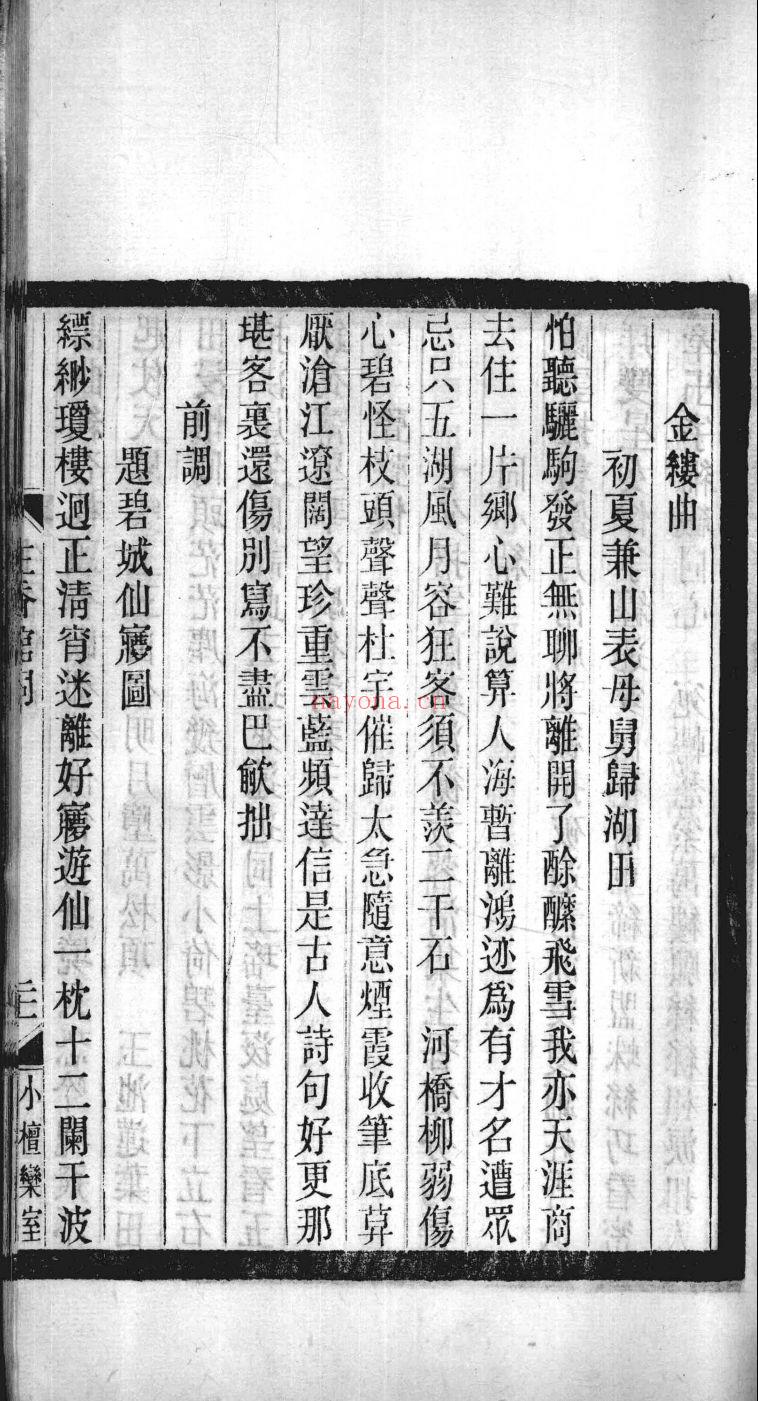 金縷曲
初夏兼山表母舅歸湖田
怕聽驪駒發正無聊將離開了酴醾飛雪我亦天涯商
去住一片鄉心難說算人海暫離鴻迹爲有才名遭眾
忌只五湖風月容狂客須不羨二千石　河橋柳弱傷
心碧怪枝頭聲聲杜宇催歸太急隨意煙霞收筆底莫
厭滄江遼闊望珍重雲藍頻達信是古人詩句好更那
堪客裏還傷別寫不盡巴歈拙
前調
題碧城仙㝱圖
縹緲瓊樓迥正淸宵迷離好㝱遊仙一枕十二闌干波
小檀欒室
nayona.cn